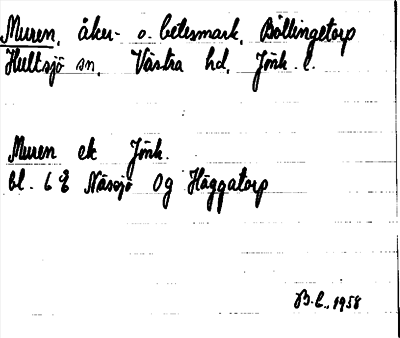 Muren, åker- o. betesmark, Böllingetorp
Hultsjö sn, Västra hd, Jönk. l.
Muren ek Jönk.
bl. 6 E Nässjö 0g Häggatorp
B.L., 1958